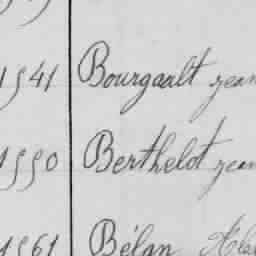 1541 Bourgault Jean
1550 Berthelot Jean
1561 Bélan